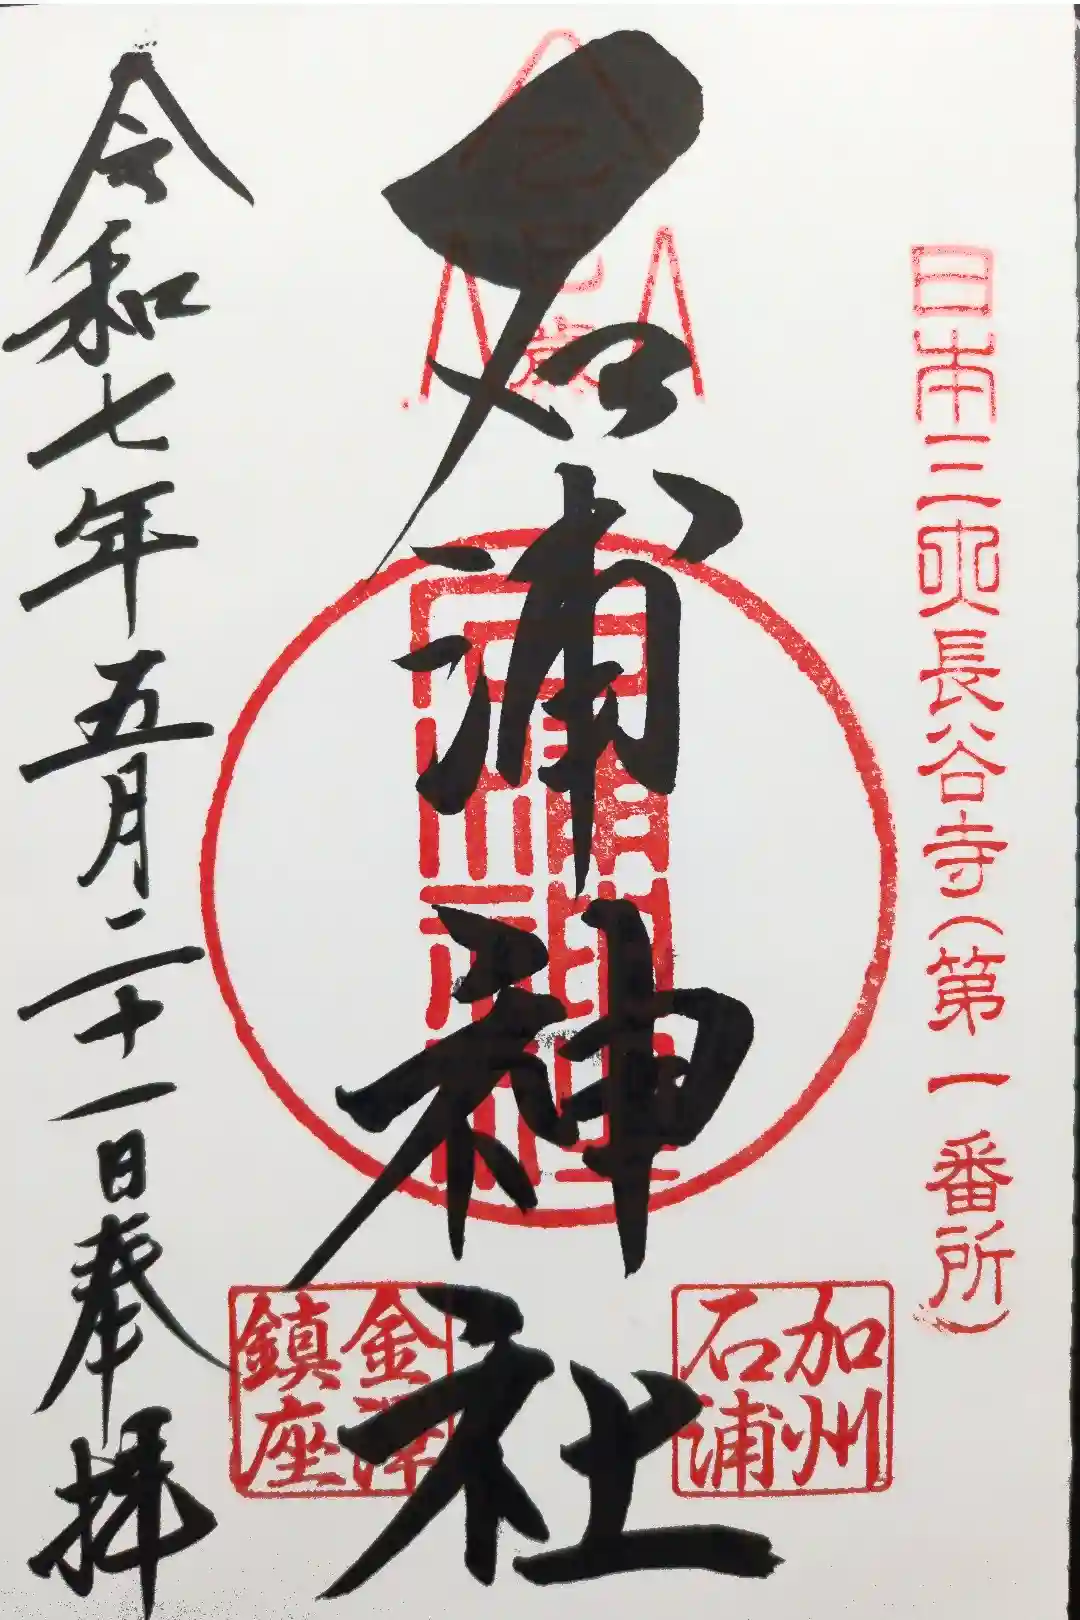 日本三大長谷寺(第一番所)
加州
石浦
乙巳歳
石浦神社
金澤
鎮座
令和七年五月二十一日奉拝